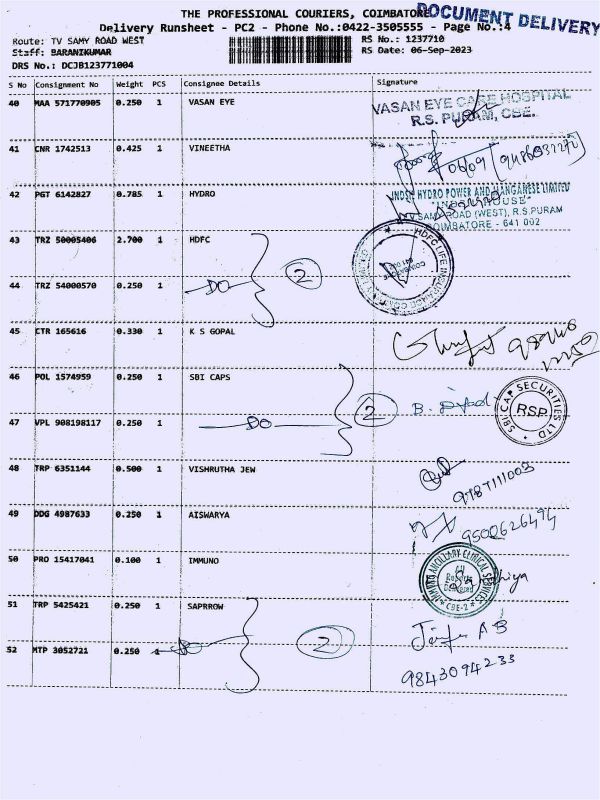 THE PROFESSIONAL COURIERS, COIMBATORE
DOCUMENT DELIVERY
Delivery Runsheet - PC2 - Phone No.:0422-3505555 - Page No.:4
Route: TV SAMY ROAD WEST
RS No.: 1237710
Staff: BARANIKUMAR
RS Date: 06-Sep-2023
DRS No.: DCJB123771004
S No Consignment No Weight PCS Consignee Details Signature
40 MAA 571770905 0.250 1 VASAN EYE
VASAN EYE CARE HOSPITAL
R.S. PURAM, CBE.
41 CNR 1742513 0.425 1 VINEETHA
06/09
42 PGT 6142827 0.785 1 HYDRO
INDSIL HYDRO POWER AND MANGANESE LIMITED
"INDSIL HOUSE"
T.V SAMY ROAD (WEST), R.S.PURAM
COIMBATORE - 641 002
43 TRZ 50005406 2.700 1 HDFC
HDFC LIFE INSURANCE COMPANY LIMITED
COIMBATORE
2
44 TRZ 54000570 0.250 1 DO
45 CTR 165616 0.330 1 K S GOPAL
46 POL 1574959 0.250 1 SBI CAPS
2
B.
SBI CAP SECURITIES LTD
RSP
47 VPL 908198117 0.250 1 DO
48 TRP 6351144 0.500 1 VISHRUTHA JEW
9787111003
49 DDG 4987633 0.250 1 AISWARYA
9500626494
50 PRO 15417041 0.100 1 IMMUNO
IMMUNO ANCILLARY CLINICAL SERVICES
CBE-2
51 TRP 5425421 0.250 1 SAPRROW
2
A B
52 MTP 3052721 0.250 1 DO
9843094233